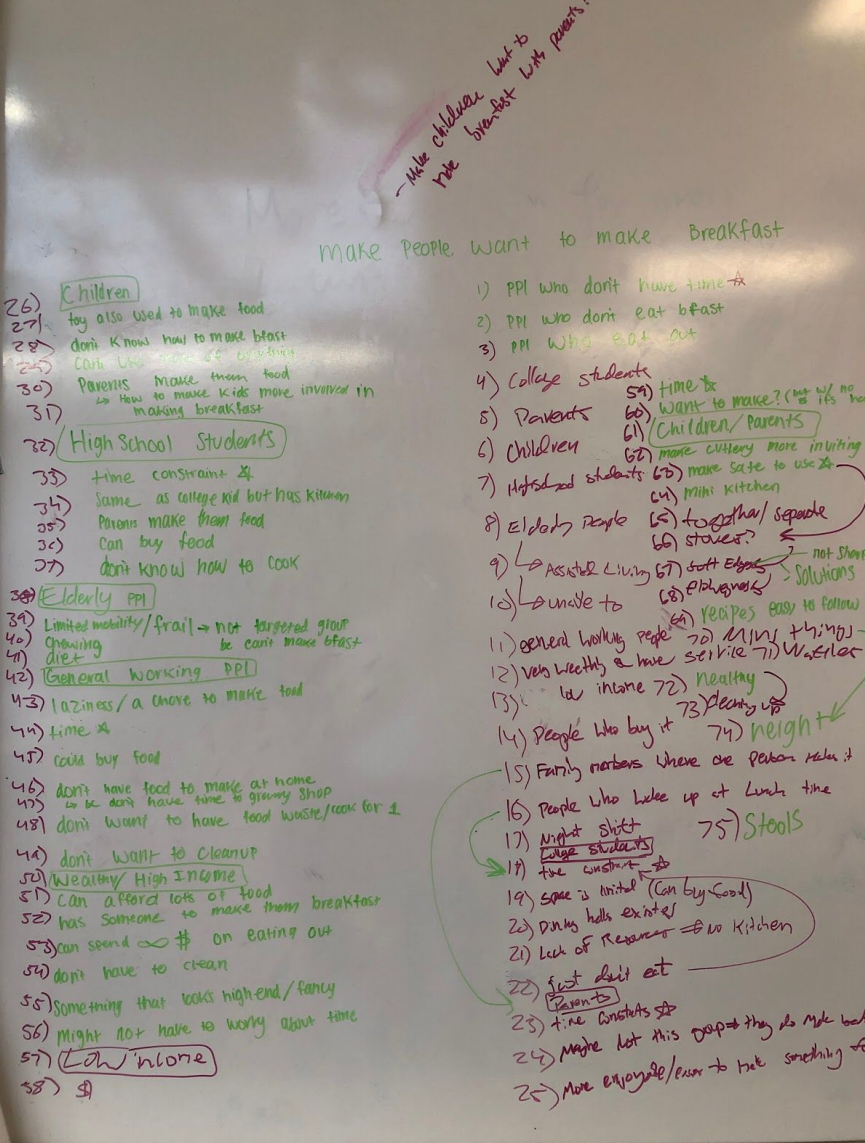 - Make children want to
make breakfast with parents?
make people want to make Breakfast
26) Children
27) toy also used to make food
28) don't know how to make bfast
29)
30) Parents make them food
↳ How to make kids more involved in
31) making breakfast
32) High School Students
33) time constraint ☆
34) Same as college kid but has kitchen
35) Parents make them food
36) Can buy food
37) don't know how to cook
38) Elderly PPl
39) Limited mobility/frail → not targeted group
40) Chewing bc can't make bfast
41) diet
42) General Working PPl
43) laziness/a chore to make food
44) time ☆
45) could buy food
46) don't have food to make at home
47) ↳ bc don't have time to grocery shop
48) don't want to have food waste/cook for 1
49) don't want to cleanup
50) Wealthy/High Income
51) Can afford lots of food
52) has someone to make them breakfast
53) can spend ∞ $ on eating out
54) don't have to clean
55) Something that looks high end/fancy
56) might not have to worry about time
57) Low income
58) $
1) PPl who don't have time ☆
2) PPl who don't eat bfast
3) PPl who eat out
4) College students
5) Parents
6) Children
7) Highschool students
8) Elderly People
9) ↳ Assisted Living
10) ↳ unable to
11) general working people
12) very wealthy & have service
13) low income
14) People who buy it
15) Family members where one person makes it
16) People who wake up at Lunch time
17) Night shift
College students
18) time constraint ☆
19) space is limited (Can buy food)
20) Dining halls existed
21) Lack of Resources ⇒ No Kitchen
22) just don't eat
Parents
23) time constraints ☆
24) Maybe not this group → they do make
25) More enjoyable/easier to make something
59) time ☆
60) Want to make? (
61) Children/Parents
62) make cutlery more inviting
63) make safe to use ☆
64) mini kitchen
65) together/separate
66) stoves?
67) Soft Edges - not Sharp
68) Solutions
69) recipes easy to follow
70) Mini things
71) Waffles
72) healthy
73) cleaning up
74) height
75) Stools